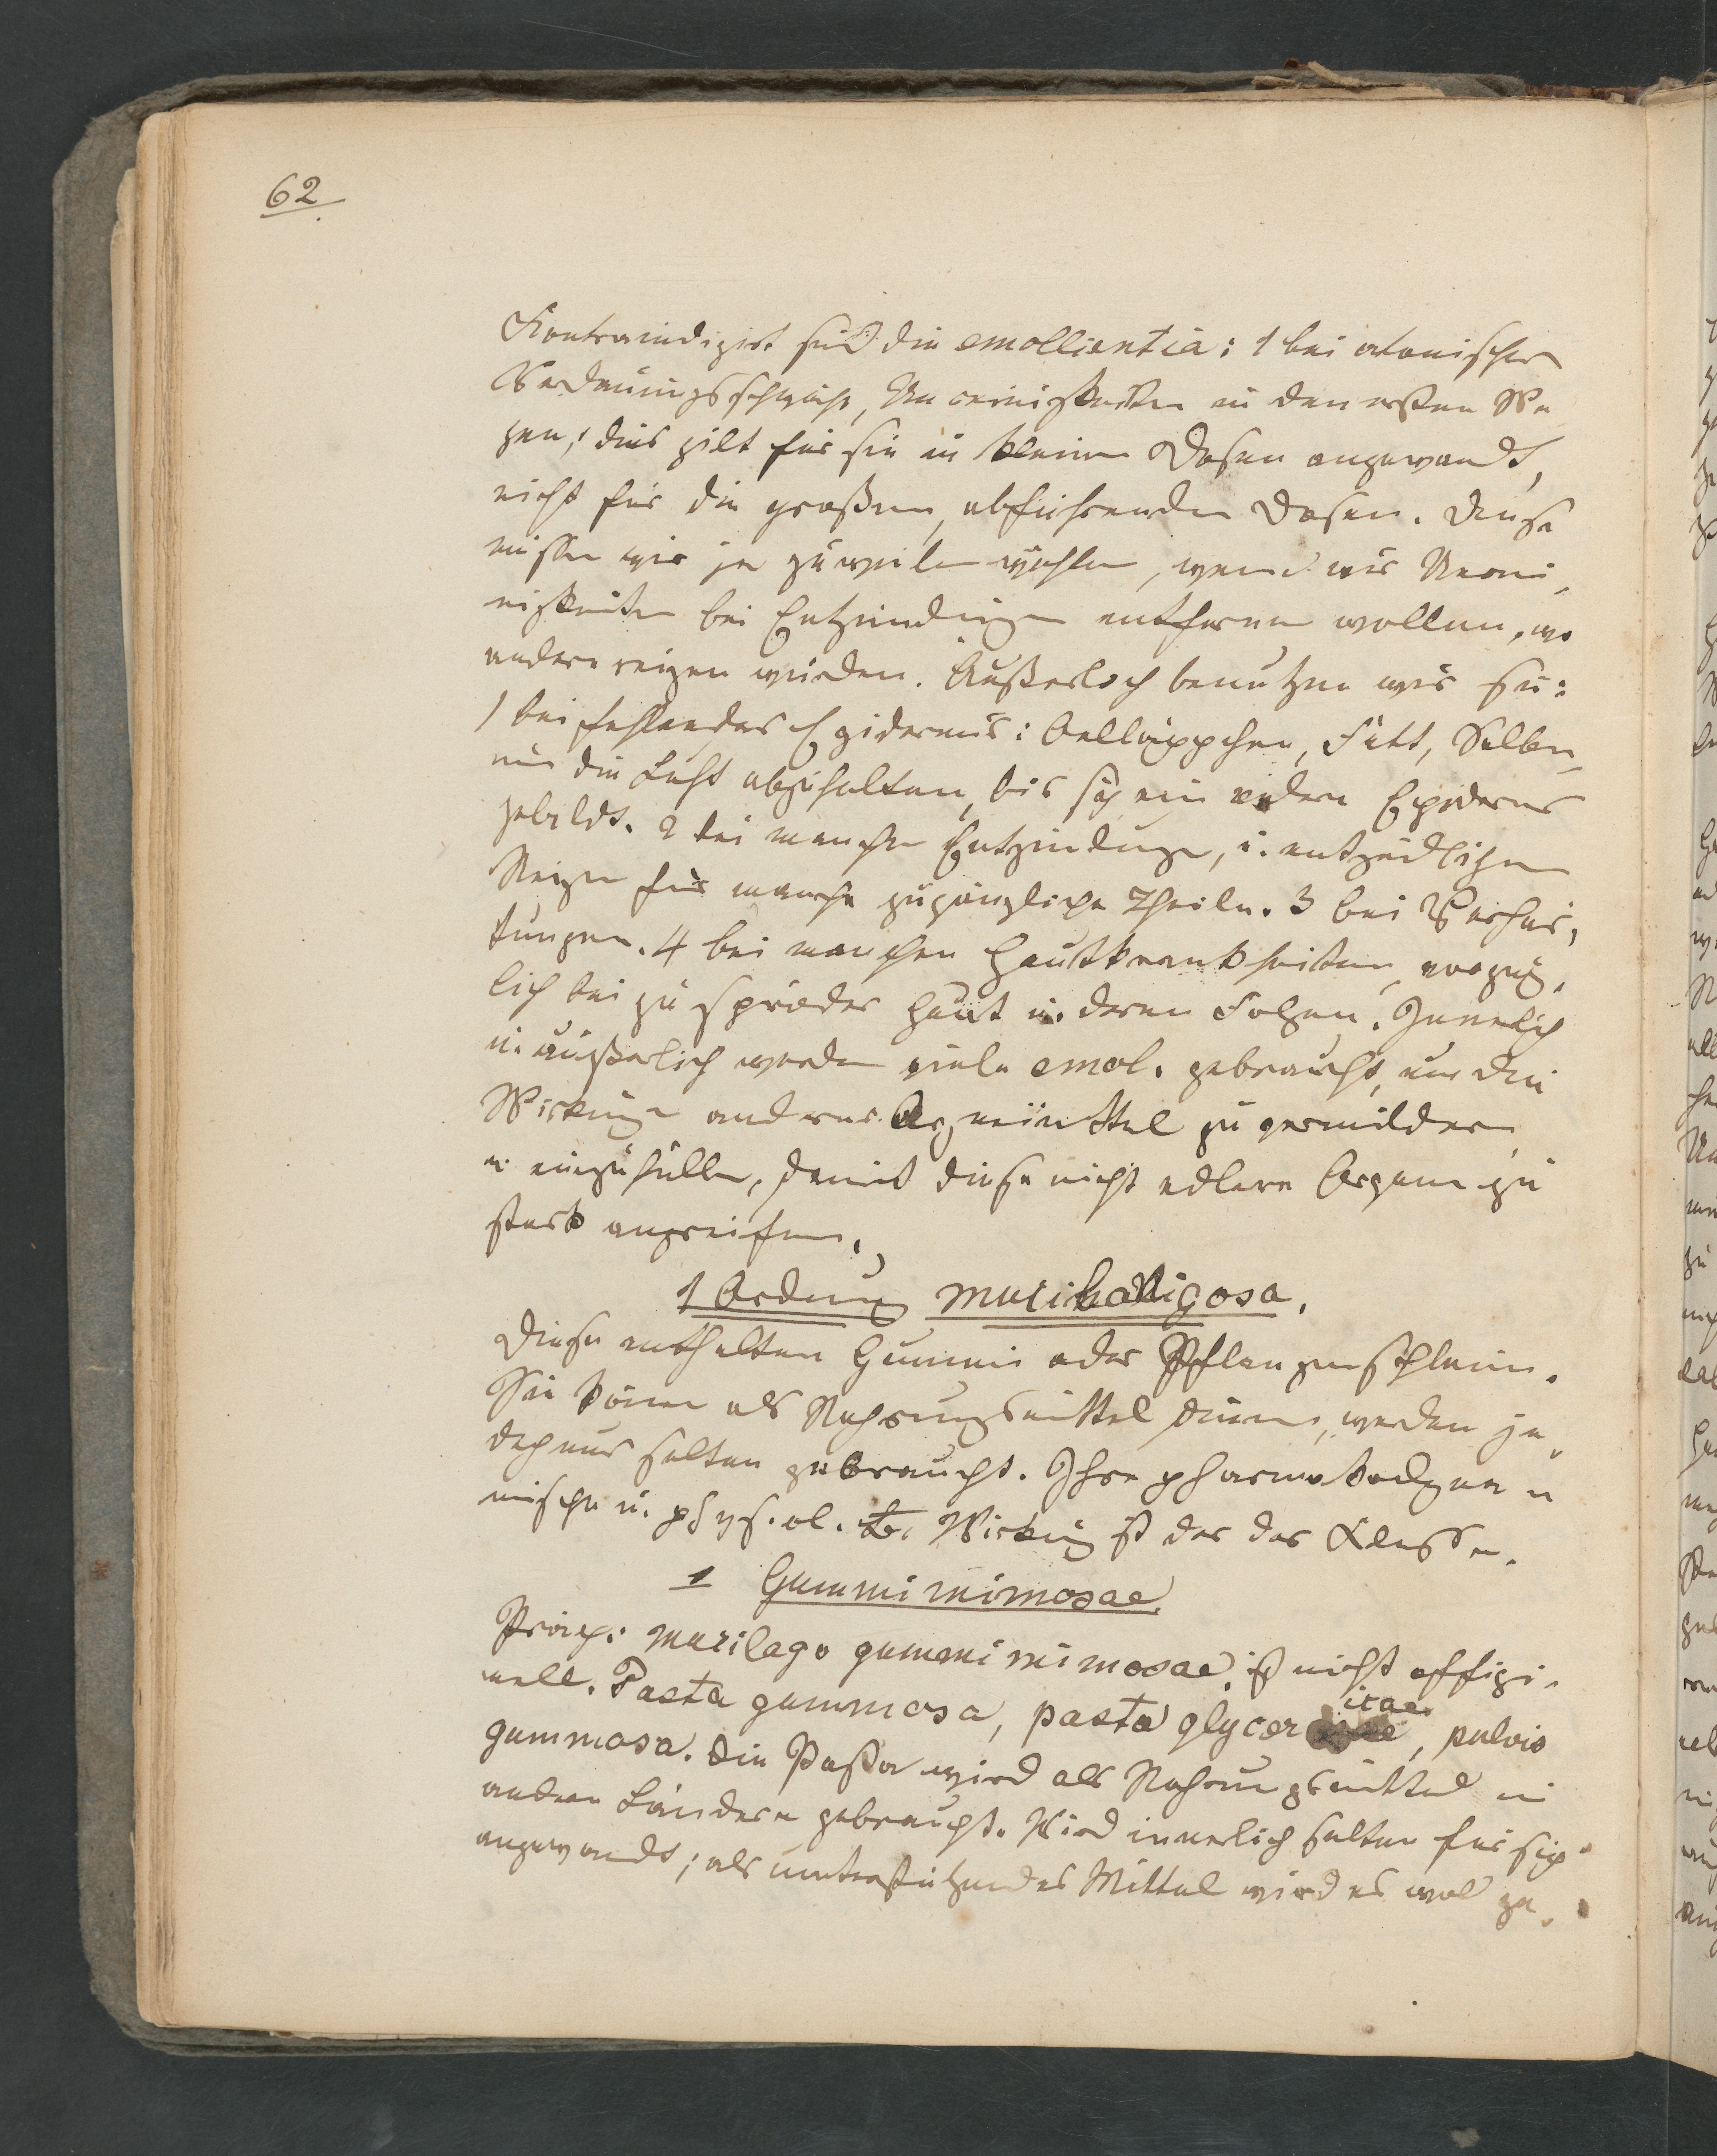 62
Kontraindizirt sind die emollientia: 1 bei atonischer
Verdauungsschwäche, Unreinigkeiten in den ersten We
gen; dies gilt für sie in kleinen Dosen angewandt,
nicht für die großen, abführenden Dosen. Diese
müssen wir ja zuweilen wählen, wenn wir Unrei-
nigkeiten bei Entzündungen entfernen wollen, wo
andere reizen würden. Äußerlich benutzen wir sie:
1 bei fehlender Epidermis: Oelläppchen, Fett, Salben,
um die Luft abzuhalten, bis sich eine andere Epidermis
gebildt. 2 bei manchen Entzündungen, u. entzündlichen
Reizen für manche zugängliche Theile. 3 bei Verhär-
tungen. 4 bei manchen Hautkrankheiten, vorzüg-
lich bei zu spröder Haut u. deren Folgen. Innerlich
u. äußerlich werden viele emol. gebraucht, um die
Wirkung anderer Arzneimittel zu vermildern
u. einzuhüllen, damit diese nicht edlere Organe zu
stark angreifen.
1 Ordnung mucilaginosa.
Diese enthalten Gummi oder Pflanzenschleim.
Sie können als Nahrungsmittel dienen, werden je-
doch nur selten gebraucht. Ihre pharmakodyna
mische u. physiol. Wirkung ist der der Klasse.
1 Gummi mimosae.
Präp: mucilago gummi mimosae, ist nicht offizi-
nell. Pasta gummosa, pasta glyceritae, pulvis
gummosa. Die Pasta wird als Nahrungsmittel in
andern Ländern gebraucht. Wird innerlich selten für sich
angewandt; als unterstützendes Mittel wird es wol ge-